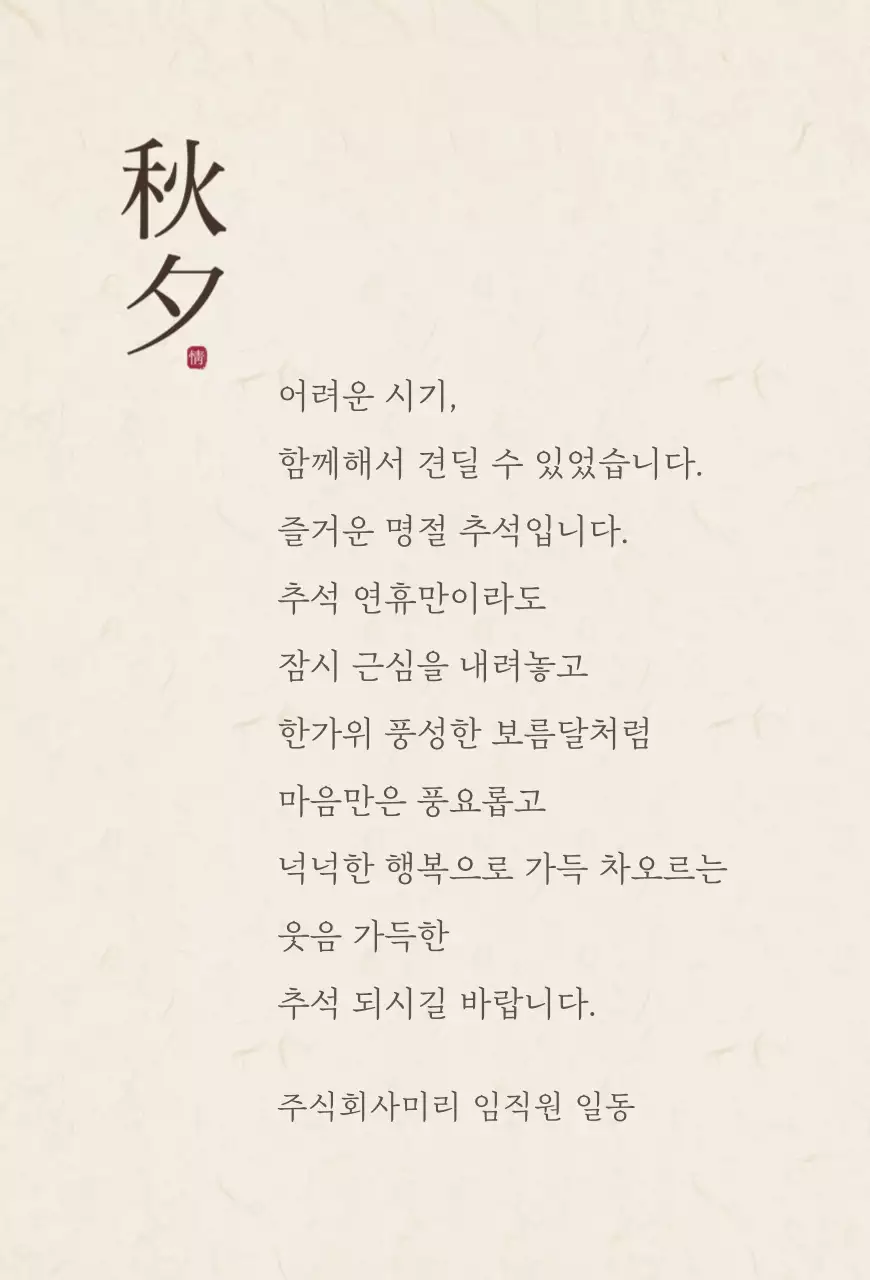 秋夕
情
어려운 시기,
함께해서 견딜 수 있었습니다.
즐거운 명절 추석입니다.
추석 연휴만이라도
잠시 근심을 내려놓고
한가위 풍성한 보름달처럼
마음만은 풍요롭고
넉넉한 행복으로 가득 차오르는
웃음 가득한
추석 되시길 바랍니다.
주식회사미리 임직원 일동